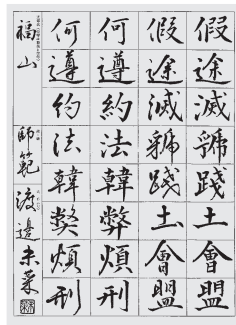 假途滅虢踐土會盟
假途滅虢踐土會盟
何遵約法韓弊煩刑
何遵約法韓弊煩刑
福山 師範 渡邊未菜